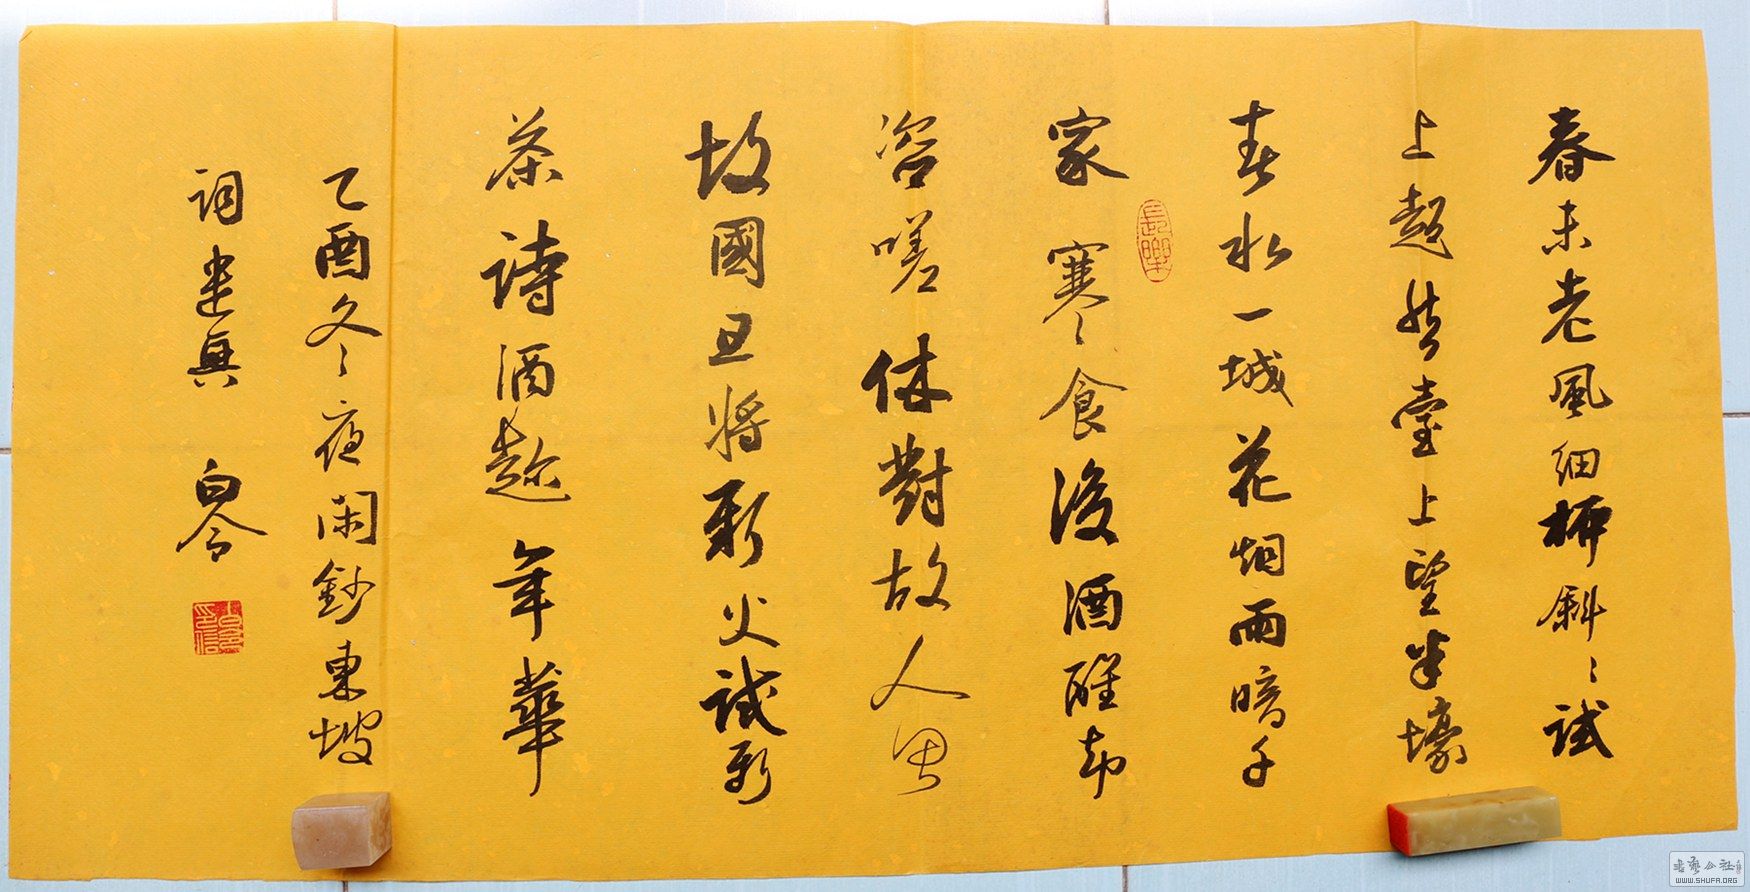 春未老風細柳斜〻試
上超然臺上望半壕
春水一城花烟雨暗千
家寒食後酒醒却
咨嗟休對故人思
故國且將新火試新
茶詩酒趁年華
乙酉冬夜閑鈔東坡
詞遣興 白令
長樂
WWW.SHUFA.ORG